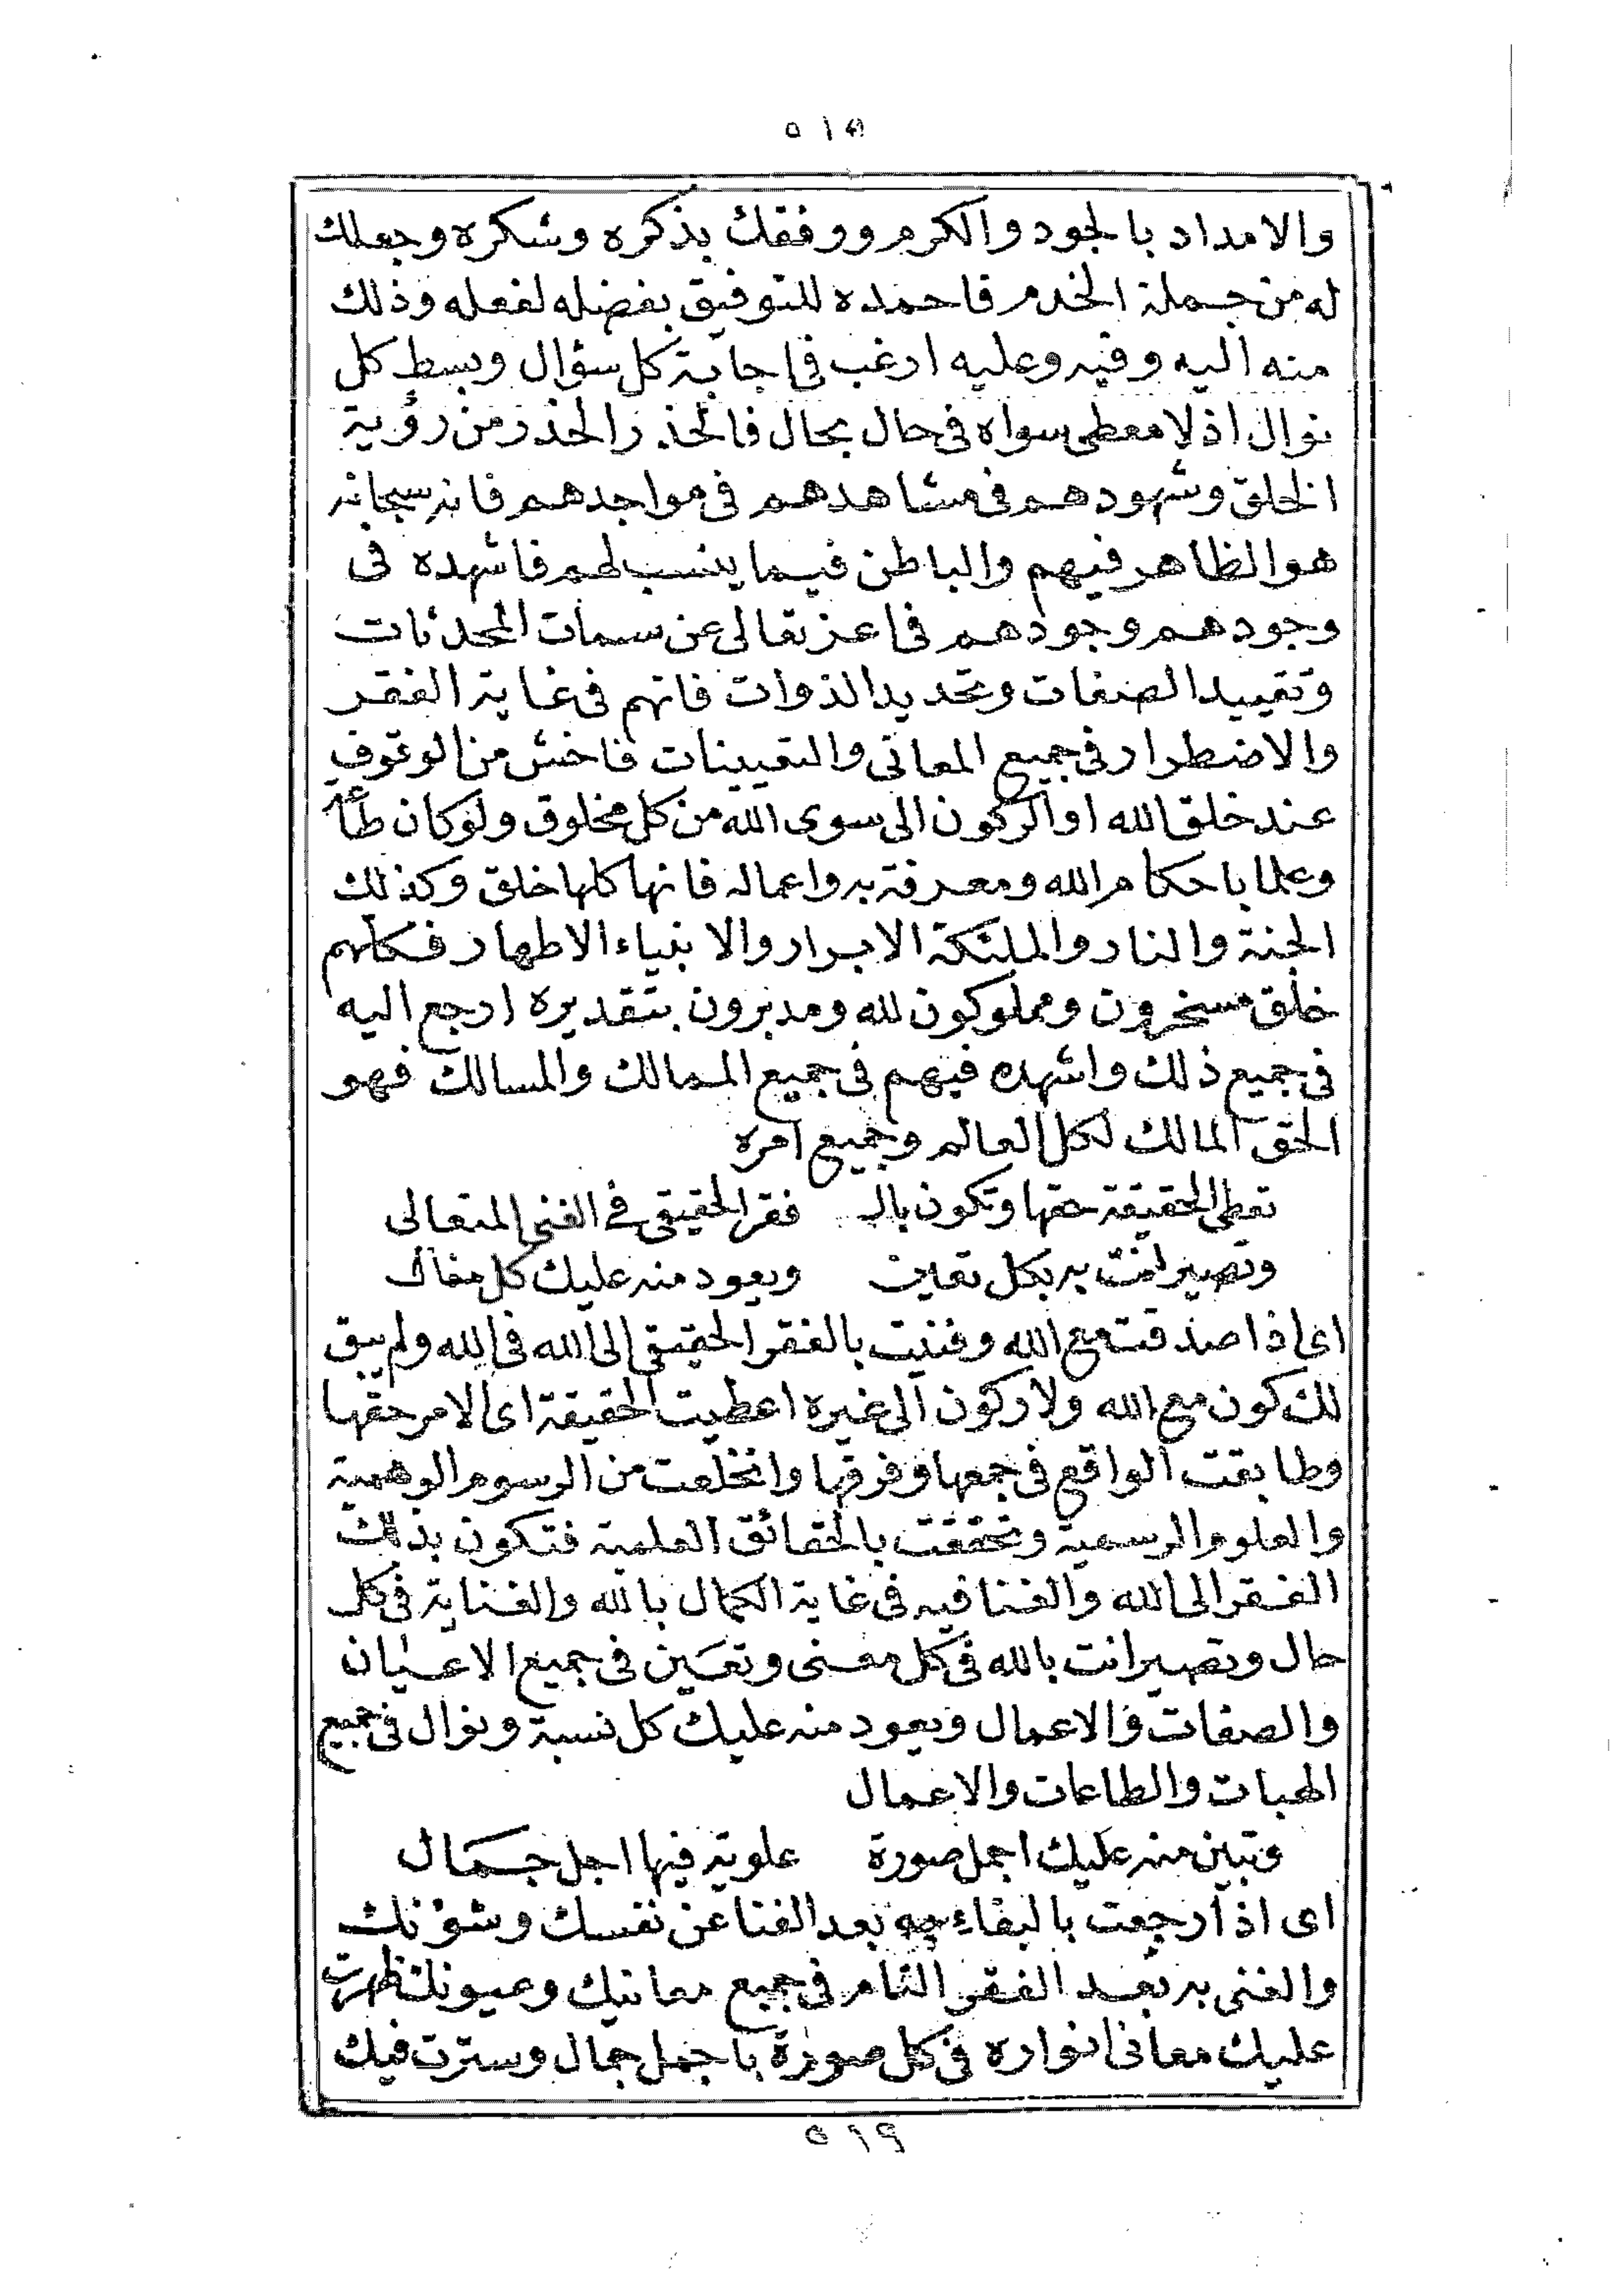 ٥١٥
والامداد بالجود والكرم ووفقك بذكره وشكره وجعلك
له من جملة الخدم فاحمده للتوفيق بفضله لفعله وذلك
منه اليه وفيه وعليه ارغب في اجابة كل سؤال وبسط كل
نوال اذ لا معطي سواه في حال بحال فالحذر الحذر من رؤية
الخلق وشهودهم في مشاهدهم في مواجدهم فانه سبحانه
هو الظاهر فيهم والباطن فيما ينسب لهم فاشهده في
وجودهم وجودهم في اعز تعالى عن سمات المحدثات
وتقييد الصفات وتحديد الذوات فانهم في غاية الفقر
والاضطرار في جميع المعاني والتعيينات فاخش من الوقوف
عند خلق الله او الركون الى سوى الله من كل مخلوق ولو كان
وعلما باحكام الله ومعرفة به واعماله فانها كلها خلق وكذلك
الجنة والنار والملئكة الابرار والانبياء الاطهار فكلهم
خلق مسخرون ومملوكون لله ومدبرون بتقديره ارجع اليه
في جميع ذلك واشهده فيهم في جميع الممالك والمسالك فهو
الحق المالك لكل العالم وجميع امره
تعطي الحقيقة حقها وتكون بالـ فقر الحقيقي في الغني المتعالى
وتصير انت به بكل تعين ويعود منه عليك كل
اي اذا صدقت مع الله وفنيت بالفقر الحقيقي الى الله في الله ولم يبق
لك كون مع الله ولا ركون الى غيره اعطيت الحقيقة اي الامر حقها
وطابقت الواقع في جمعها وفرقها وانخلعت من الرسوم الوهمية
والعلوم الرسمية وتحققت بالحقائق العلمية فتكون بذلك
الفقر الى الله والغنا فيه في غاية الكمال بالله والغناية في كل
حال وتصير انت بالله في كل معنى وتعين في جميع الاعيان
والصفات والاعمال ويعود منه عليك كل نسبة ونوال في جميع
الهبات والطاعات والاعمال
وتبين منه عليك اجمل صورة علوية فيها اجل جمال
اي اذا رجعت بالبقاء به بعد الفنا عن نفسك وشؤنك
والغنى به بعد الفقر التام في جميع معانيك وعيونك ظهرت
عليك معاني انواره في كل صورة باجمل جمال وسترت فيك
٥١٩